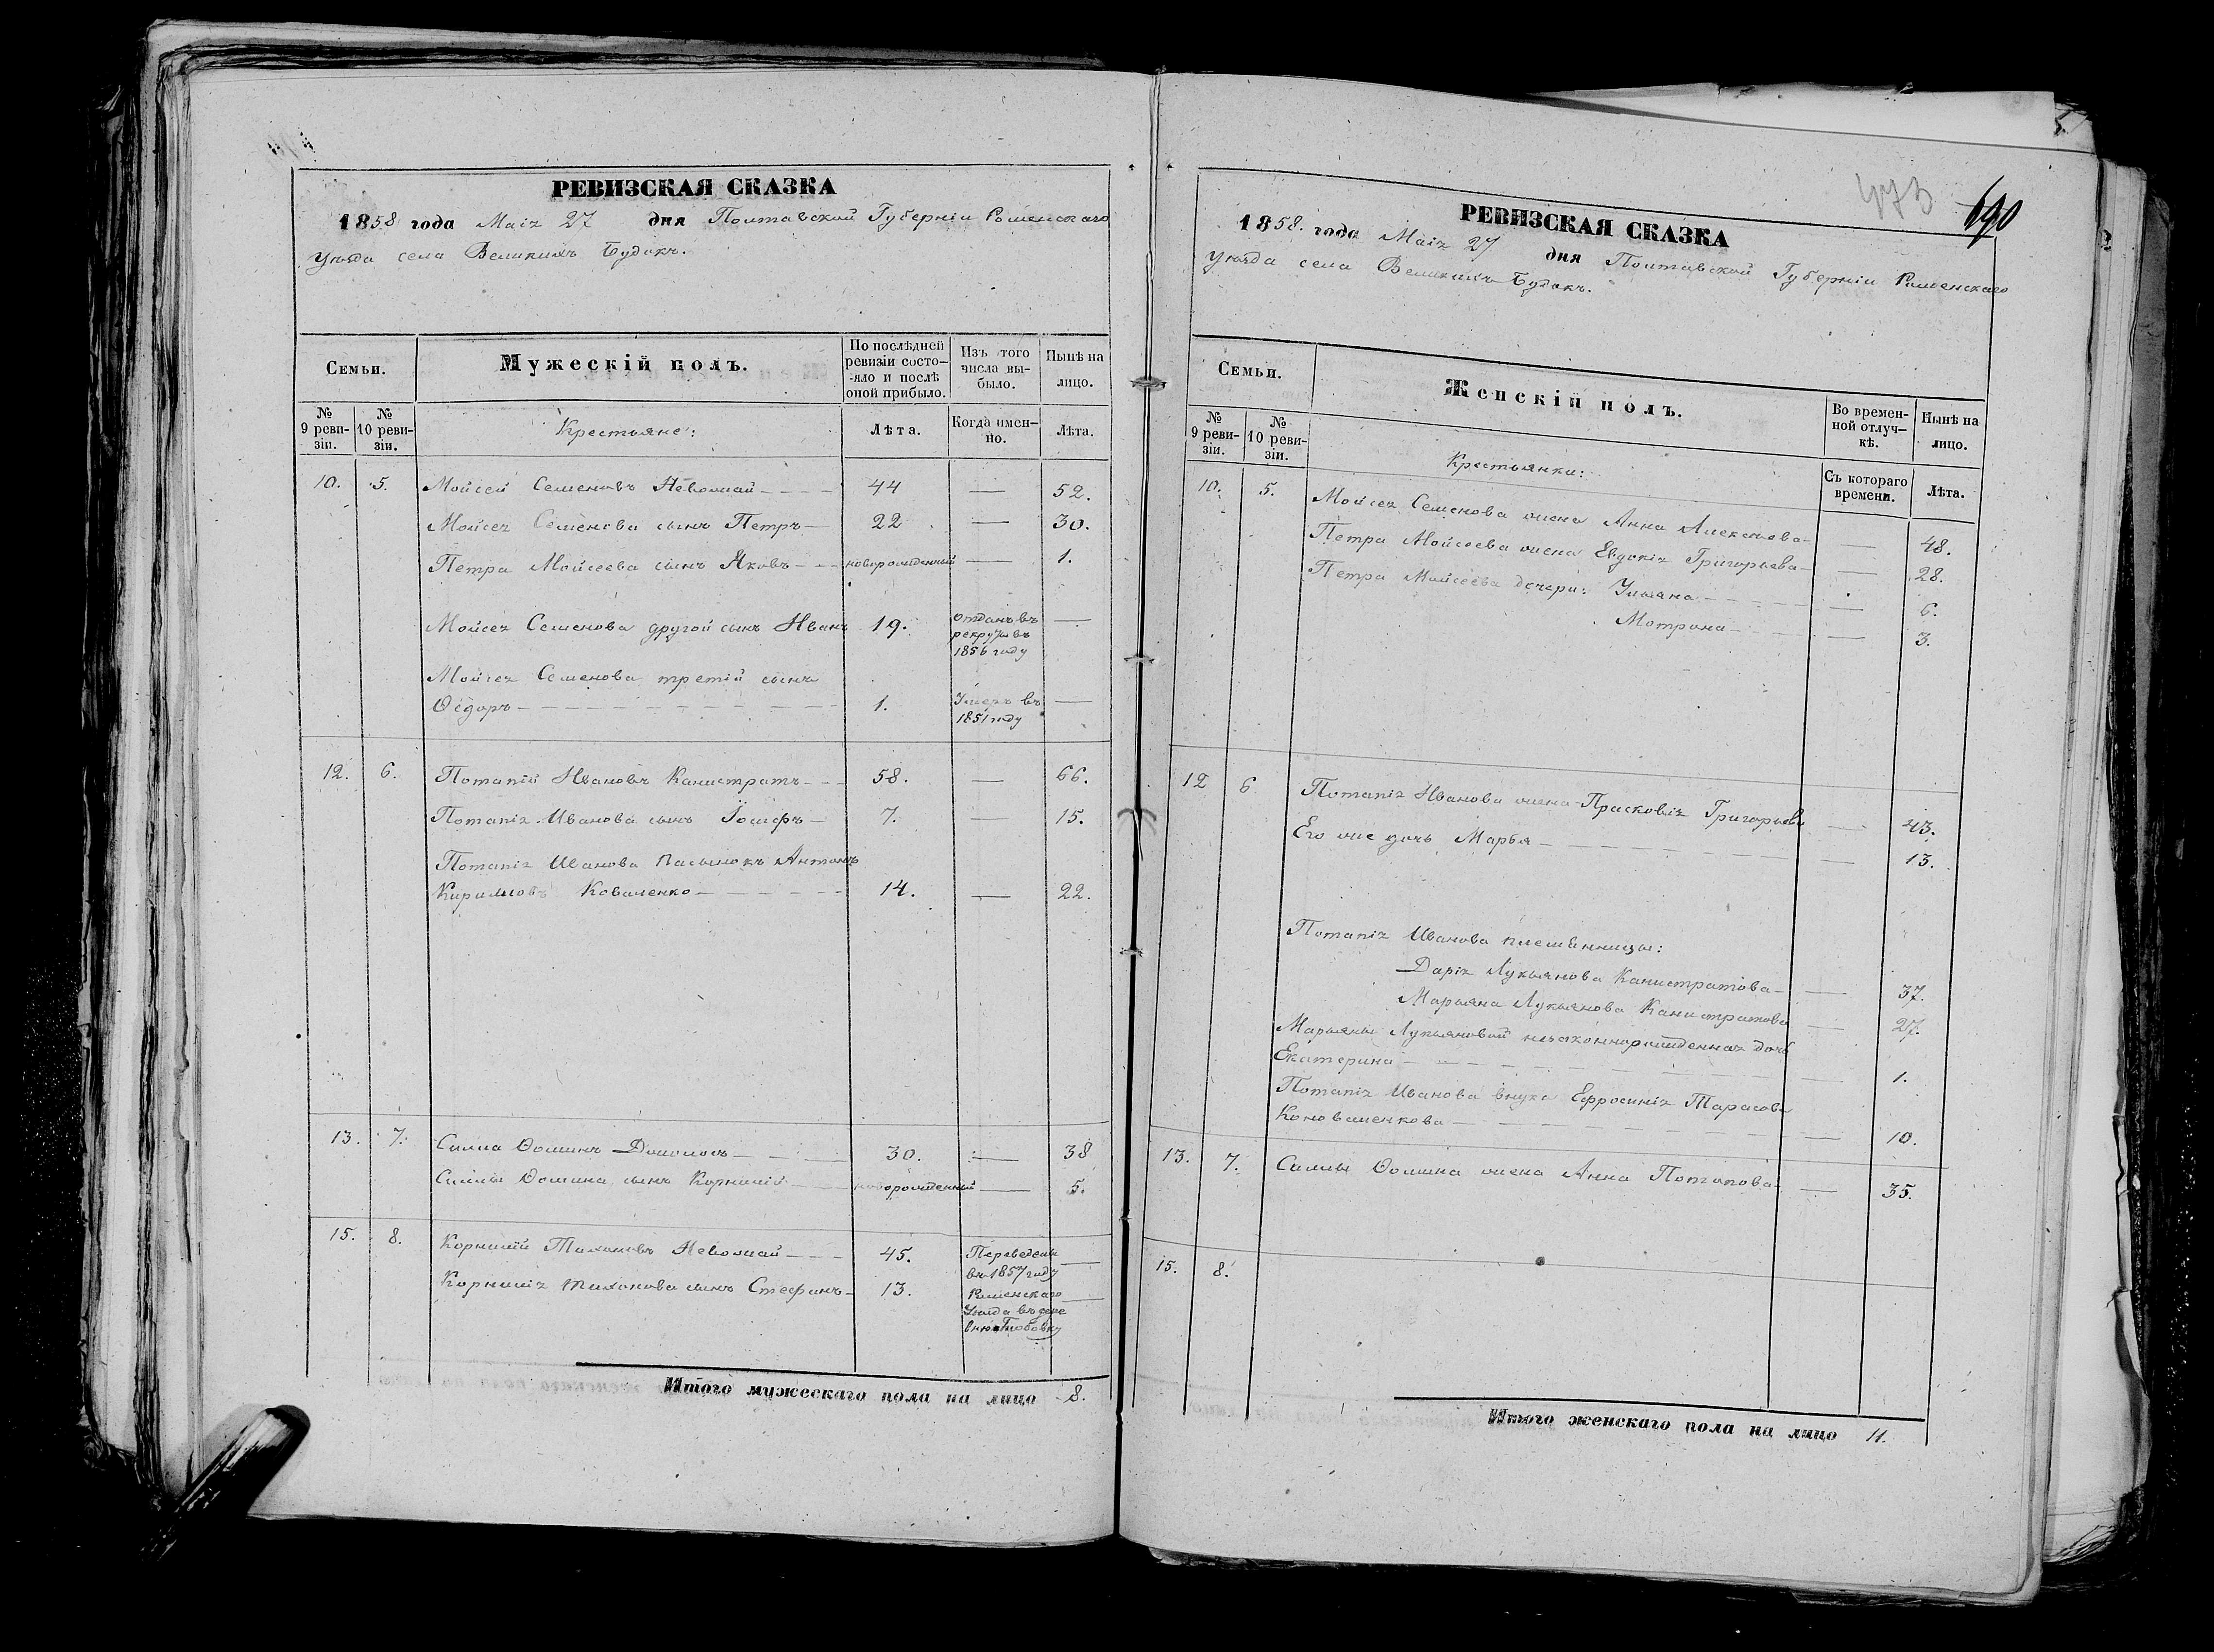 РЕВИЗСКАЯ СКАЗКА
1858 года Маія 27 дня Полтавской Губерніи Роменскаго
Уѣзда села Великихъ Будокъ.
Семьи.
Мужескій полъ.
По послѣдней ревизіи состо-яло и послѣ оной прибыло.
Изъ того числа вы-было.
Нынѣ на лицо.
№ 9 реви-зіи.
№ 10 реви-зіи.
Крестьяне:
Лѣта.
Когда имен-но.
Лѣта.
10. 5. Мойсей Семеновъ Неволжай 44 — 52.
Мойсея Семенова сынъ Петръ 22 — 30.
Петра Мойсеева сынъ Яковъ новорожденный — 1.
Мойсея Семенова другой сынъ Иванъ 19. Отданъ въ рекруты въ 1856 году —
Мойсея Семенова третій сынъ
Ѳедоръ 1. Умеръ въ 1851 году —
12. 6. Потапій Ивановъ Канистратъ 58. — 66.
Потапія Иванова сынъ Іосифъ 7. — 15.
Потапія Иванова пасынокъ Антонъ
Кириловъ Коваленко 14. — 22.
13. 7. Силла Ѳоминъ 30. — 38
Силлы Ѳомина сынъ Корнилій новорожденный — 5.
15. 8. Корнилій Тихоновъ Неволжай 45. Переведены въ 1857 году —
Корнилія Тихонова сынъ Стефанъ 13. Роменскаго Уѣзда въ дере вню —
Итого мужескаго пола на лицо 8.
473
690
РЕВИЗСКАЯ СКАЗКА
1858. года Маія 27 дня Полтавской Губерніи Роменскаго
Уѣзда села Великихъ Будокъ.
Семьи.
Женскій полъ.
Во времен-ной отлуч-кѣ.
Нынѣ на лицо.
№ 9 реви-зіи.
№ 10 реви-зіи.
Крестьянки:
Съ котораго времени.
Лѣта.
10. 5. Мойсея Семенова жена Анна Алексѣева — 48.
Петра Мойсеева жена Евдокія Григорьева — 28.
Петра Мойсеева дочери: Ульяна — 6.
Мотрона — 3.
12 6 Потапія Иванова жена Прасковія Григорьева — 43.
Его же дочь Марья — 13.
Потапія Иванова племѣнницы:
Дарія Лукьянова Канистратова — 37.
Марьяна Лукьянова Канистратова — 27.
Марьяны Лукьяновой незаконнорожденная дочь
Екатерина — 1.
Потапія Иванова внука Ефросинія Тарасова
Коноваленкова — 10.
13. 7. Силлы Ѳомина жена Анна Потапова — 35.
15. 8.
Итого женскаго пола на лицо 11.